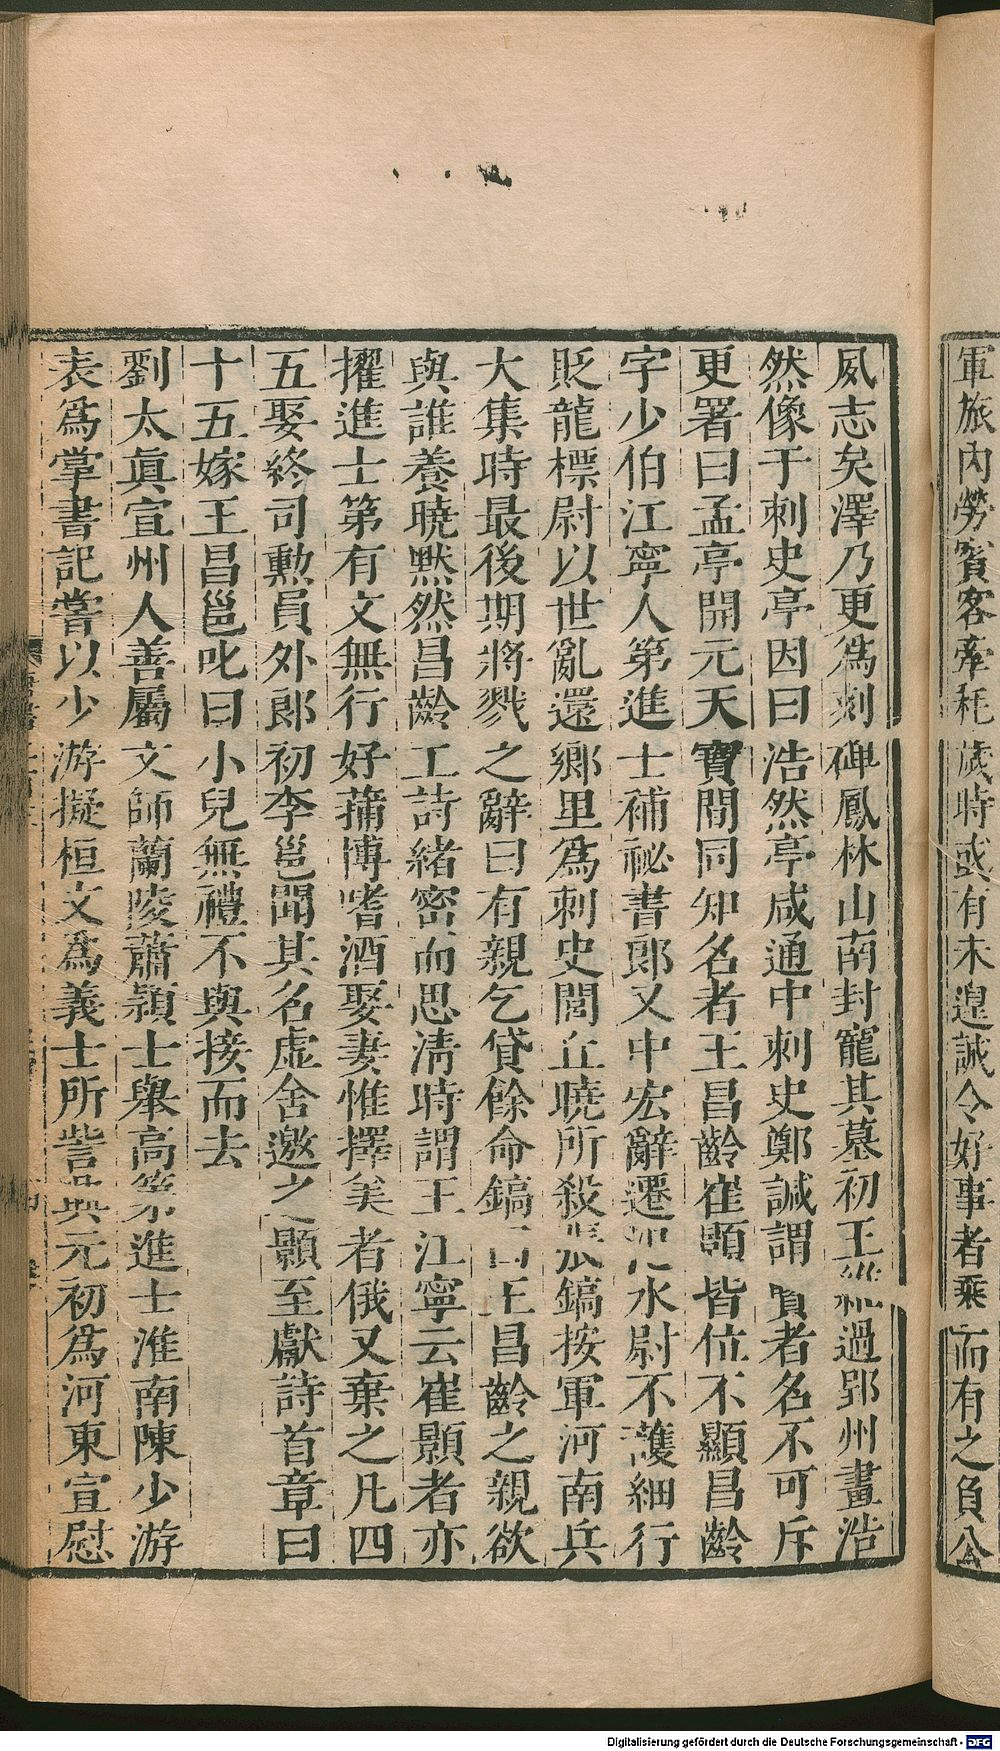 軍旅內勞賓客牽耗歲時或有未遑誠令好事者乘而有之負公
夙志矣澤乃更爲刻碑鳳林山南封寵其墓初王維過郢州畫浩
然像于刺史亭因曰浩然亭咸通中刺史鄭諴謂賢者名不可斥
更署曰孟亭開元天寶間同知名者王昌齡崔顥皆位不顯昌齡
字少伯江寧人第進士補祕書郎又中宏辭遷汜水尉不護細行
貶龍標尉以世亂還鄉里爲刺史閭丘曉所殺張鎬按軍河南兵
大集時最後期將戮之辭曰有親乞貸餘命鎬曰王昌齡之親欲
與誰養曉默然昌齡工詩緒密而思清時謂王江寧云崔顥者亦
擢進士第有文無行好蒱博嗜酒娶妻惟擇美者俄又棄之凡四
五娶終司勲員外郎初李邕聞其名虛舍邀之顥至獻詩首章曰
十五嫁王昌邕叱曰小兒無禮不與接而去
劉太眞宣州人善屬文師蘭陵蕭穎士舉高第進士淮南陳少游
表爲掌書記嘗以少游擬桓文爲義士所訾興元初爲河東宣慰
Digitalisierung gefördert durch die Deutsche Forschungsgemeinschaft - DFG